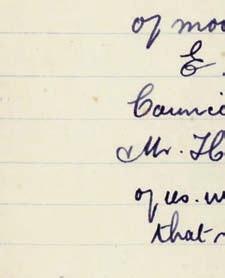 of moo
E.
Counci
& Mr. H
of us. w
that